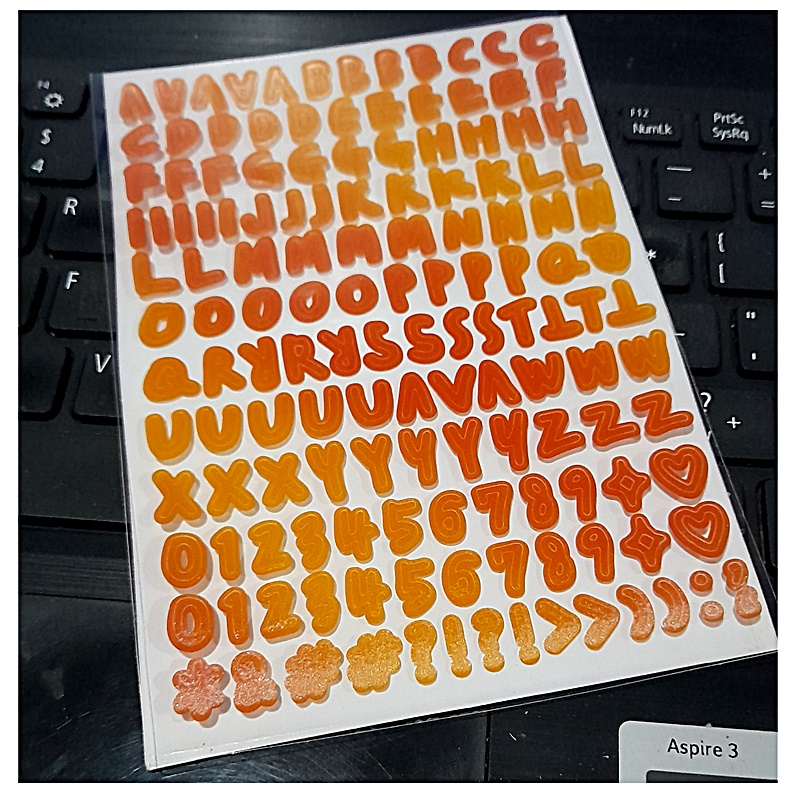 A V A V A B B B B C C C
C D D D D E E E E E F
F F F G G G G H H H H
I I I I I J J J K K K K L L
L L M M M M N N N N
O O O O O P P P P Q Q
Q R R R R S S S S T T T T
U U U U U A V A W W W
X X X Y Y Y Y Y Z Z Z
0 1 2 3 4 5 6 7 8 9
0 1 2 3 4 5 6 7 8 9
? ! ? ! > > ) ) : ;
$
4
R
F
V
F12 PrtSc
NumLk SysRq
{
[
"
'
?
+
Aspire 3